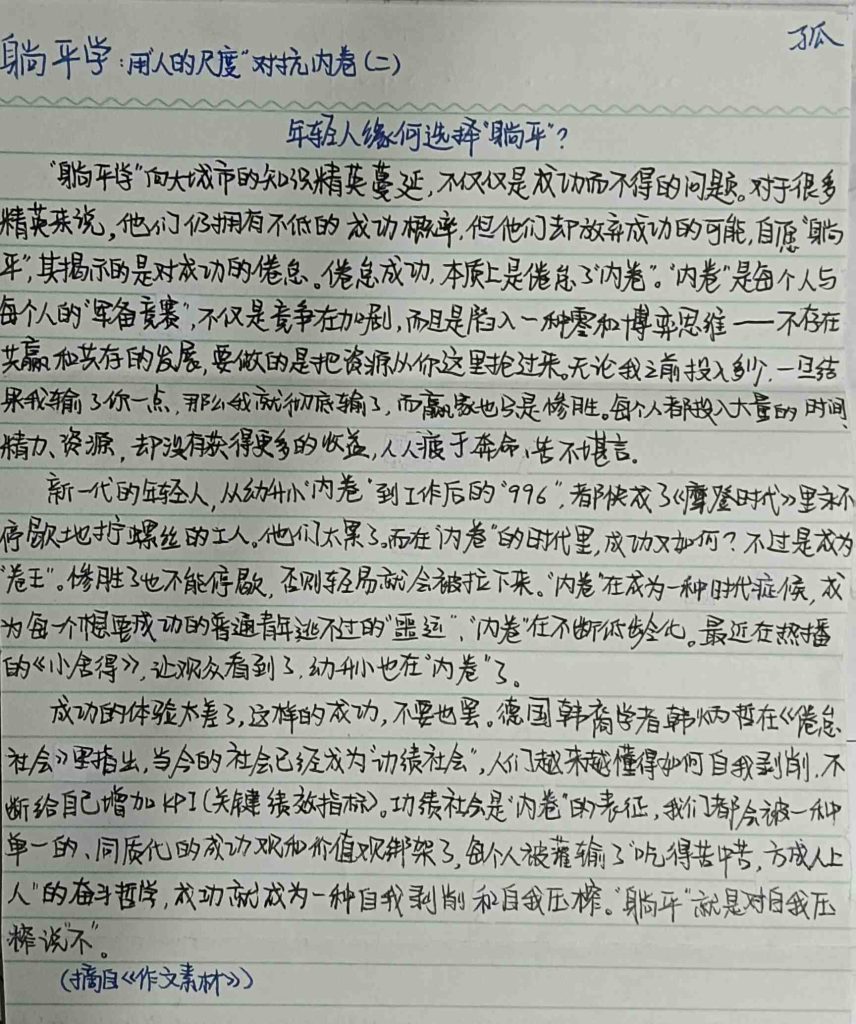 孤
躺平学:用"人的尺度"对抗内卷(二)
年轻人缘何选择"躺平"?
"躺平学"向大城市的知识精英蔓延,不仅仅是成功而不得的问题。对于很多
精英来说,他们仍拥有不低的成功概率,但他们却放弃成功的可能,自愿"躺
平",其揭示的是对成功的倦怠。倦怠成功,本质上是倦怠了"内卷"。"内卷"是每个人与
每个人的"军备竞赛",不仅是竞争在加剧,而且是陷入一种零和博弈思维——不存在
共赢和共存的发展,要做的是把资源从你这里抢过来。无论我之前投入多少,一旦结
果我输了你一点,那么我就彻底输了,而赢家也只是惨胜。每个人都投入大量的时间、
精力、资源,却没有获得更多的收益,人人疲于奔命、苦不堪言。
新一代的年轻人,从幼升小"内卷"到工作后的"996",都快成了《摩登时代》里永不
停歇地拧螺丝的工人。他们太累了。而在"内卷"的时代里,成功又如何?不过是成为
"卷王"。惨胜了也不能停歇,否则轻易就会被拉下来。"内卷"在成为一种时代症候,成
为每一个想要成功的普通青年逃不过的"噩运","内卷"在不断低龄化。最近在热播
的《小舍得》,让观众看到了,幼升小也在"内卷"了。
成功的体验太差了,这样的成功,不要也罢。德国韩裔学者韩炳哲在《倦怠
社会》里指出,当今的社会已经成为"功绩社会",人们越来越懂得如何自我剥削,不
断给自己增加KPI(关键绩效指标)。功绩社会是"内卷"的表征,我们都会被一种
单一的、同质化的成功观和价值观绑架了,每个人被灌输了"吃得苦中苦,方成人上
人"的奋斗哲学,成功就成为一种自我剥削和自我压榨。"躺平"就是对自我压
榨说"不"。
(摘自《作文素材》)